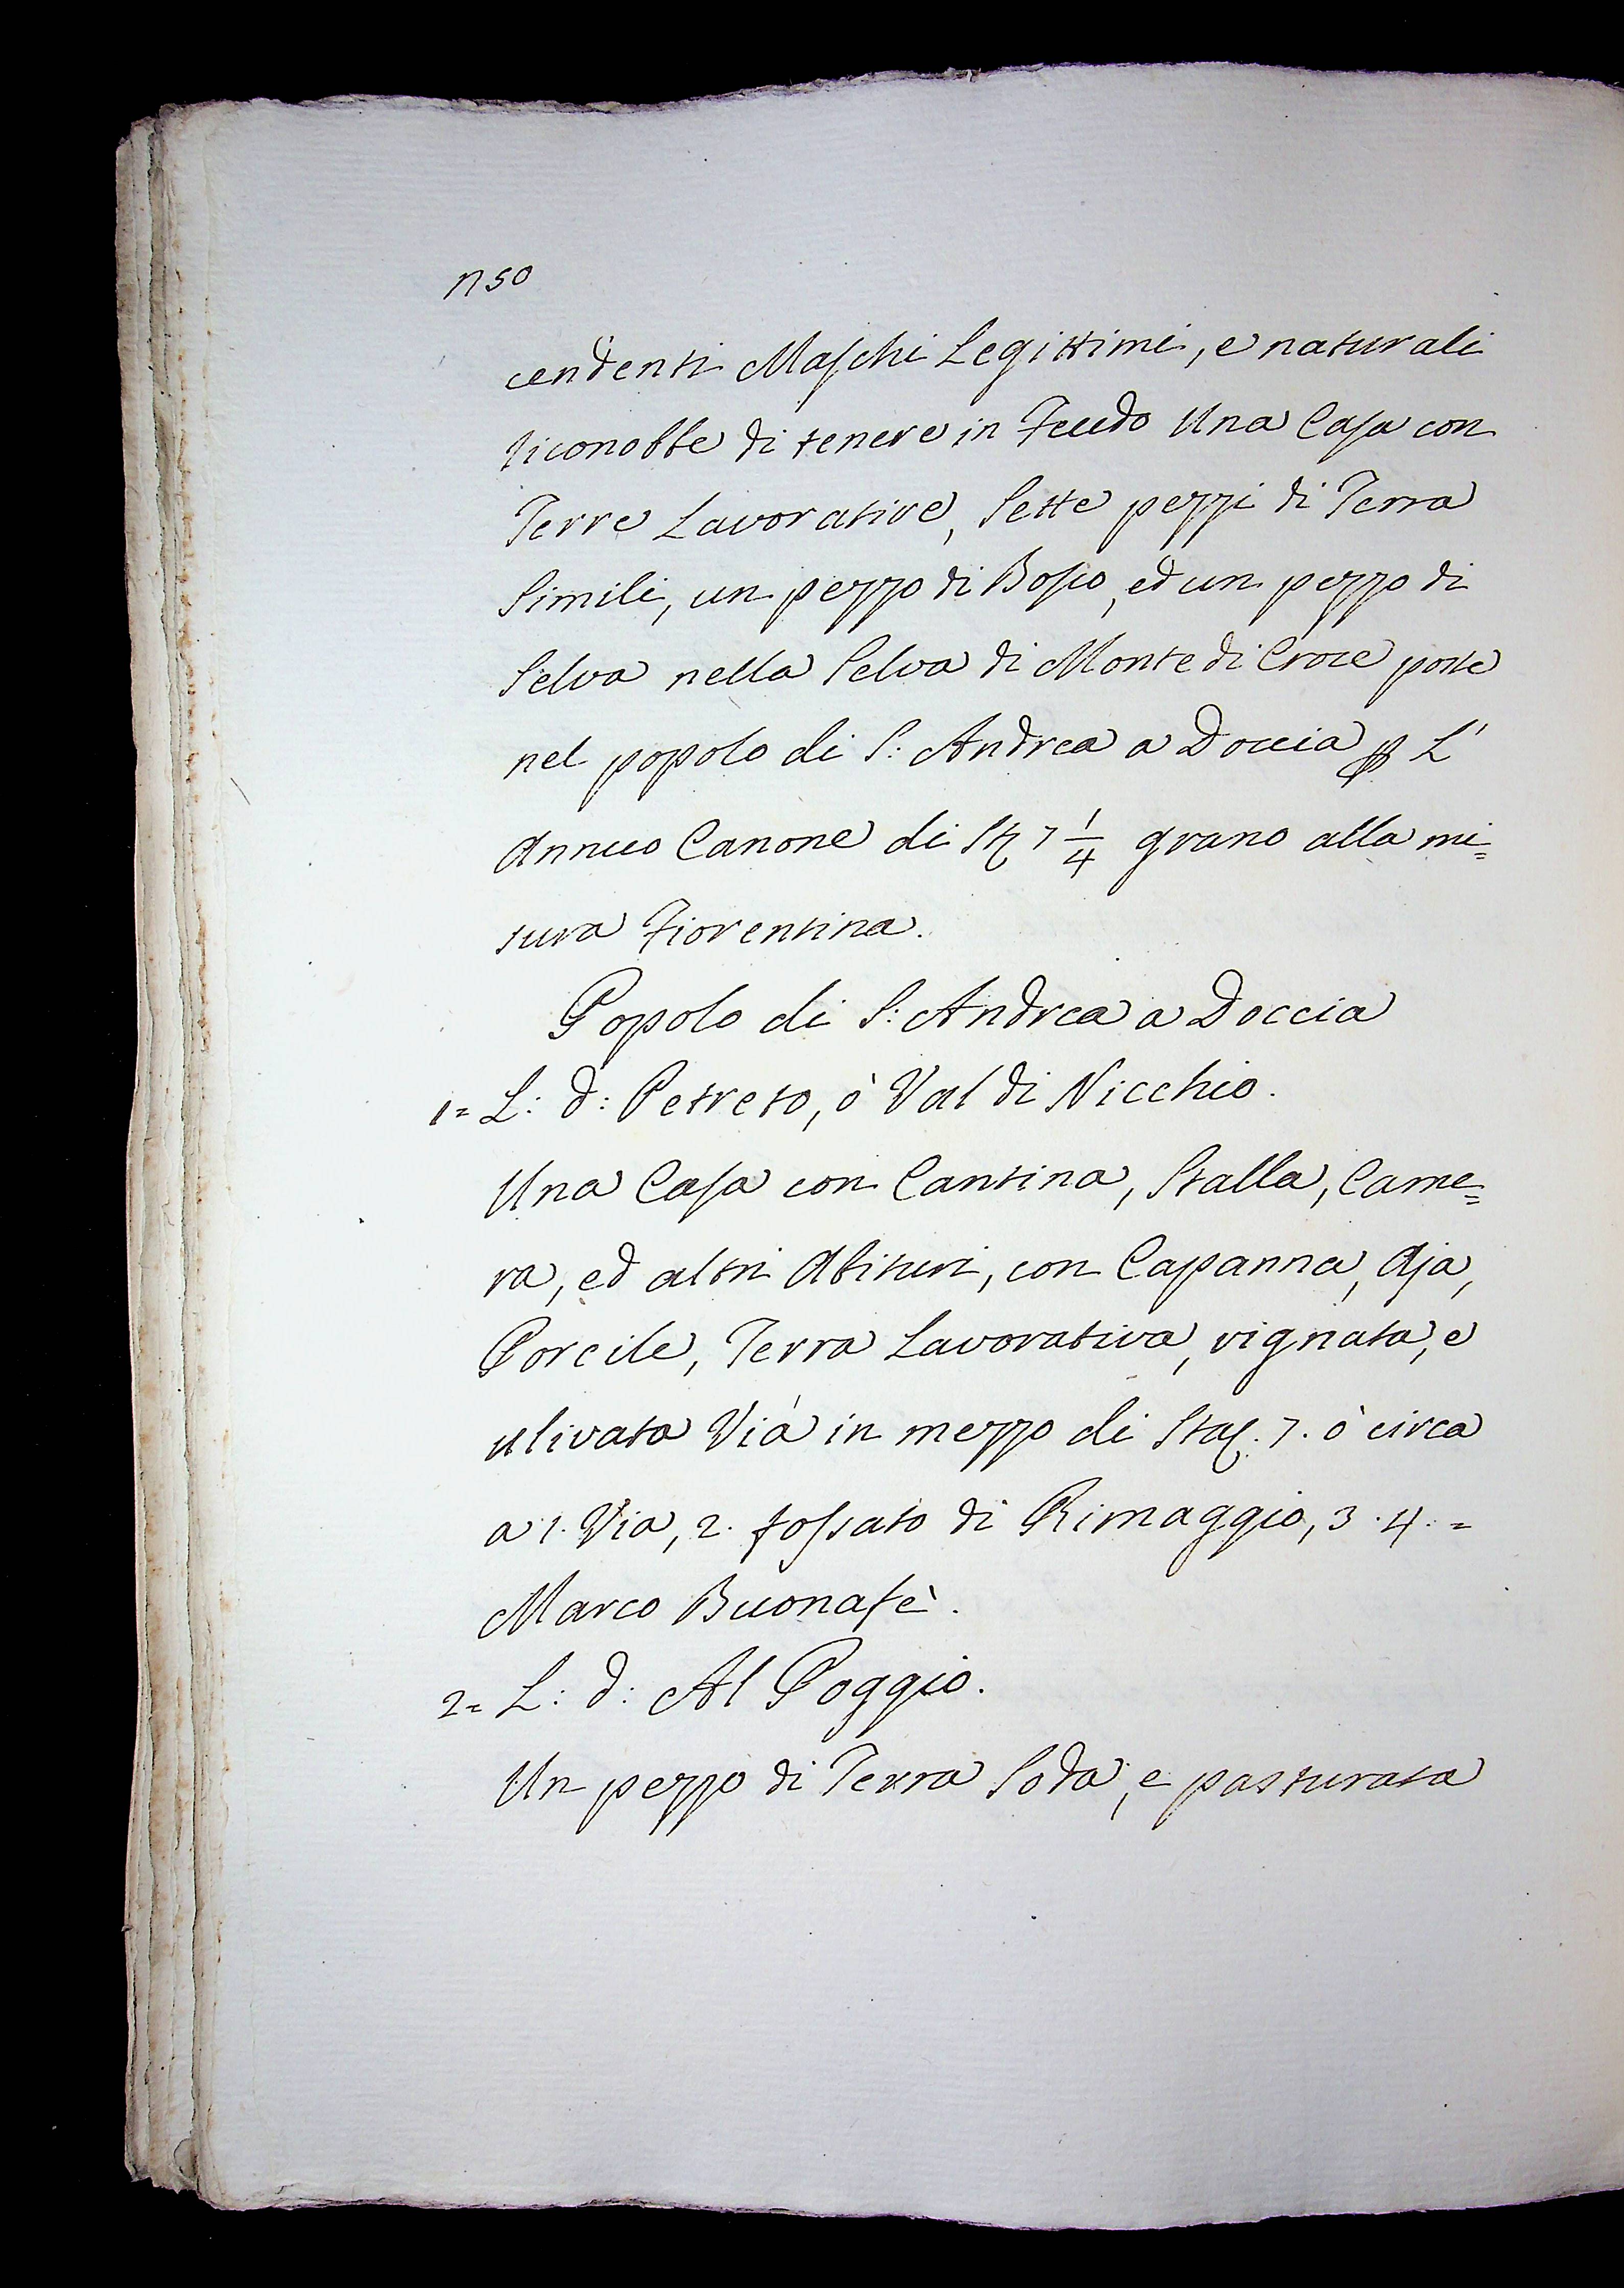 n 50
cendenti Maschi Legittimi, e naturali
riconobbe di tenere in Feudo Una Casa con
Terre Lavorative, Sette pezzi di Terra
Simili, un pezzo di Bosco, ed un pezzo di
Selva nella Selva di Monte di Croce poste
nel popolo di S: Andrea a Doccia p L'
Annuo Canone di 7 1/4 grano alla mi=
sura Fiorentina.
Popolo di S: Andrea a Doccia
1= L: d: Petreto, ò Val di Nicchio.
Una Casa con Cantina, Stalla, Came=
ra, ed altri Abituri, con Capanna, Aja,
Porcile, Terra Lavorativa, vignata, e
ulivata Via in mezzo di Staj. 7. ò circa
a 1. Via, 2. fossato di Rimaggio, 3. 4. =
Marco Buonafè.
2= L: d: Al Poggio.
Un pezzo di Terra Soda, e pasturata